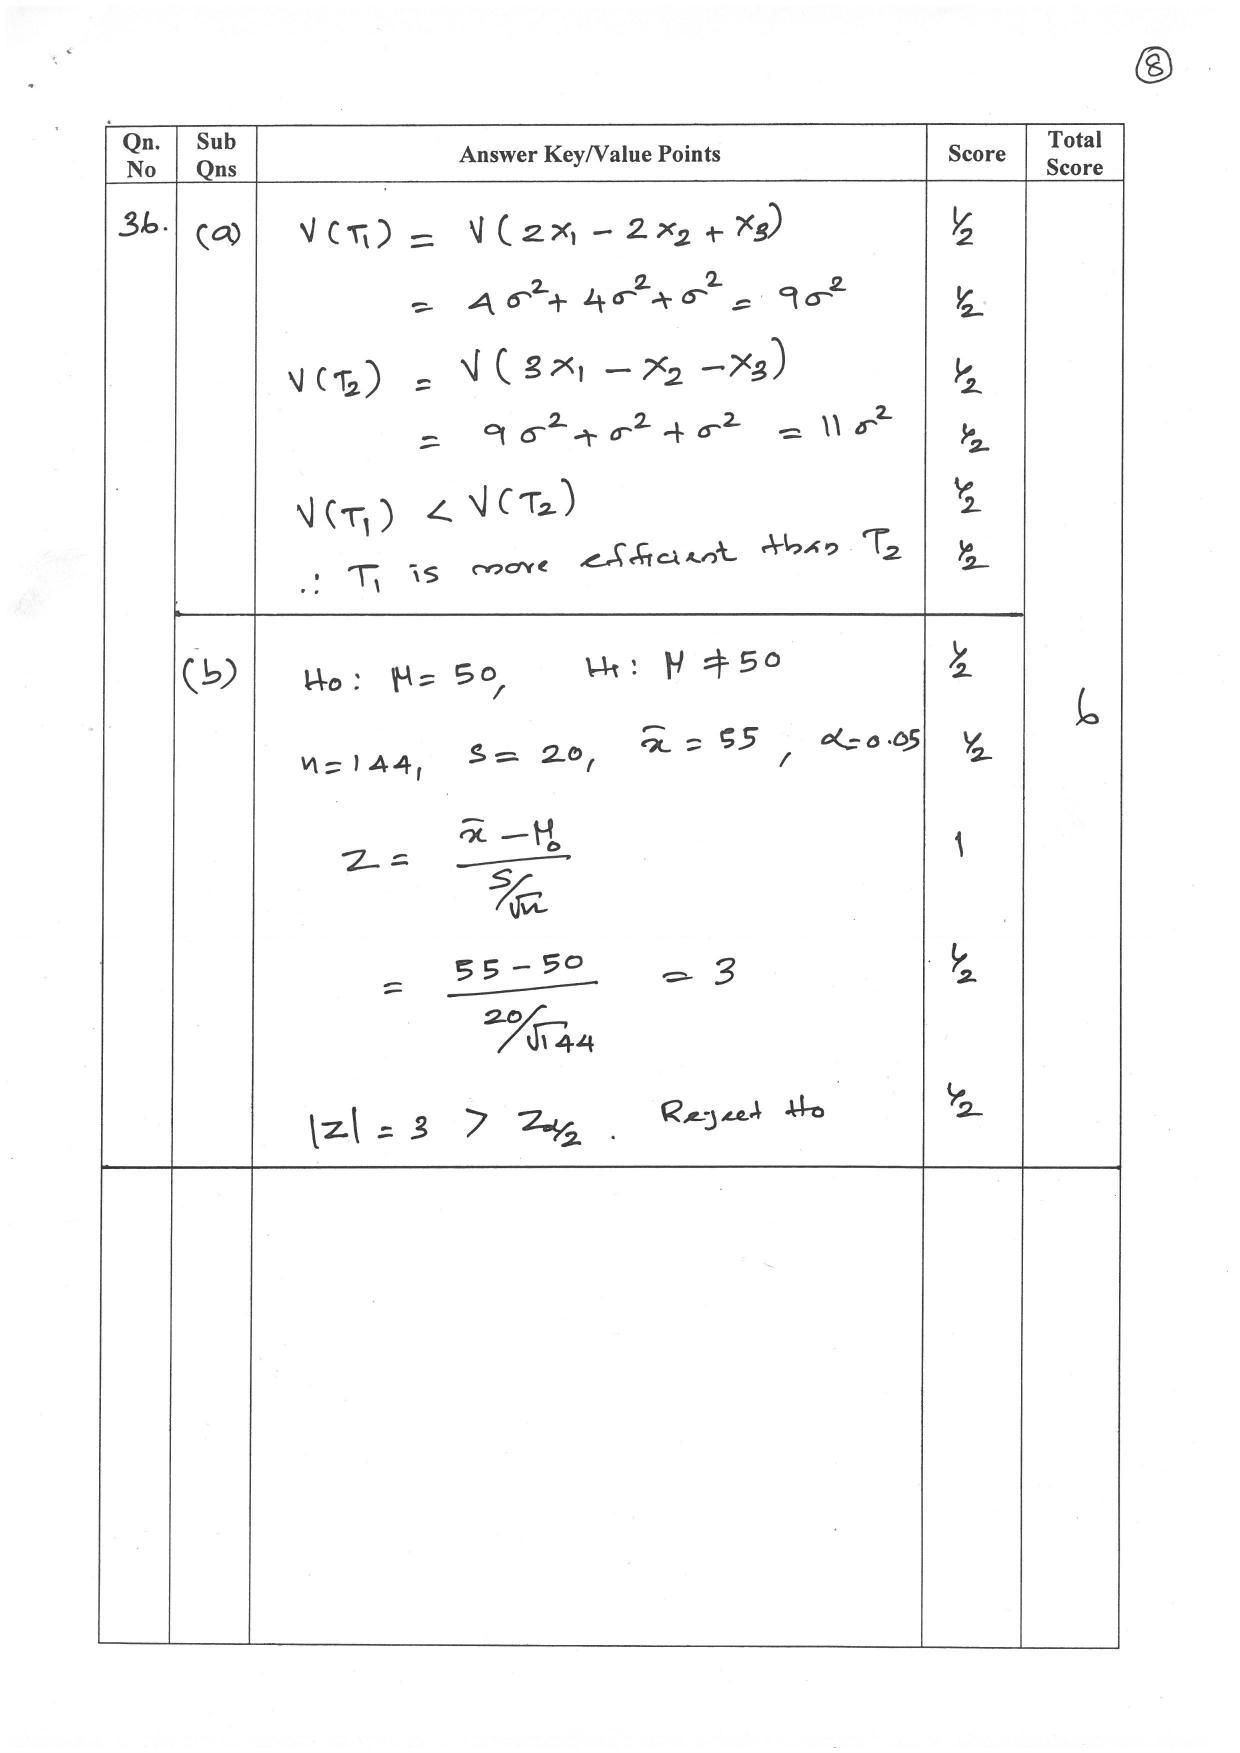 8
Qn. No Sub Qns Answer Key/Value Points Score Total Score
36. (a) V(T₁) = V(2x₁ - 2x₂ + x₃) ½
= 4σ² + 4σ² + σ² = 9σ² ½
V(T₂) = V(3x₁ - x₂ - x₃) ½
= 9σ² + σ² + σ² = 11σ² ½
V(T₁) < V(T₂) ½
∴ T₁ is more efficient than T₂ ½
(b) H₀: μ = 50, H₁: μ ≠ 50 ½
6
n=144, s= 20, x̄ = 55, α=0.05 ½
Z = (x̄ - μ₀) / (s/√n) 1
= (55 - 50) / (20/√144) = 3 ½
|Z| = 3 > Z_α/2 . Reject H₀ ½